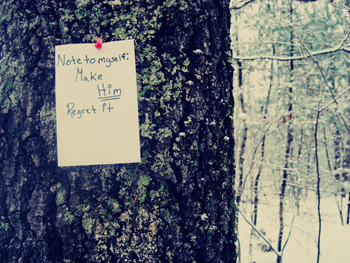 Note to myself:
Make
Him
Regret it